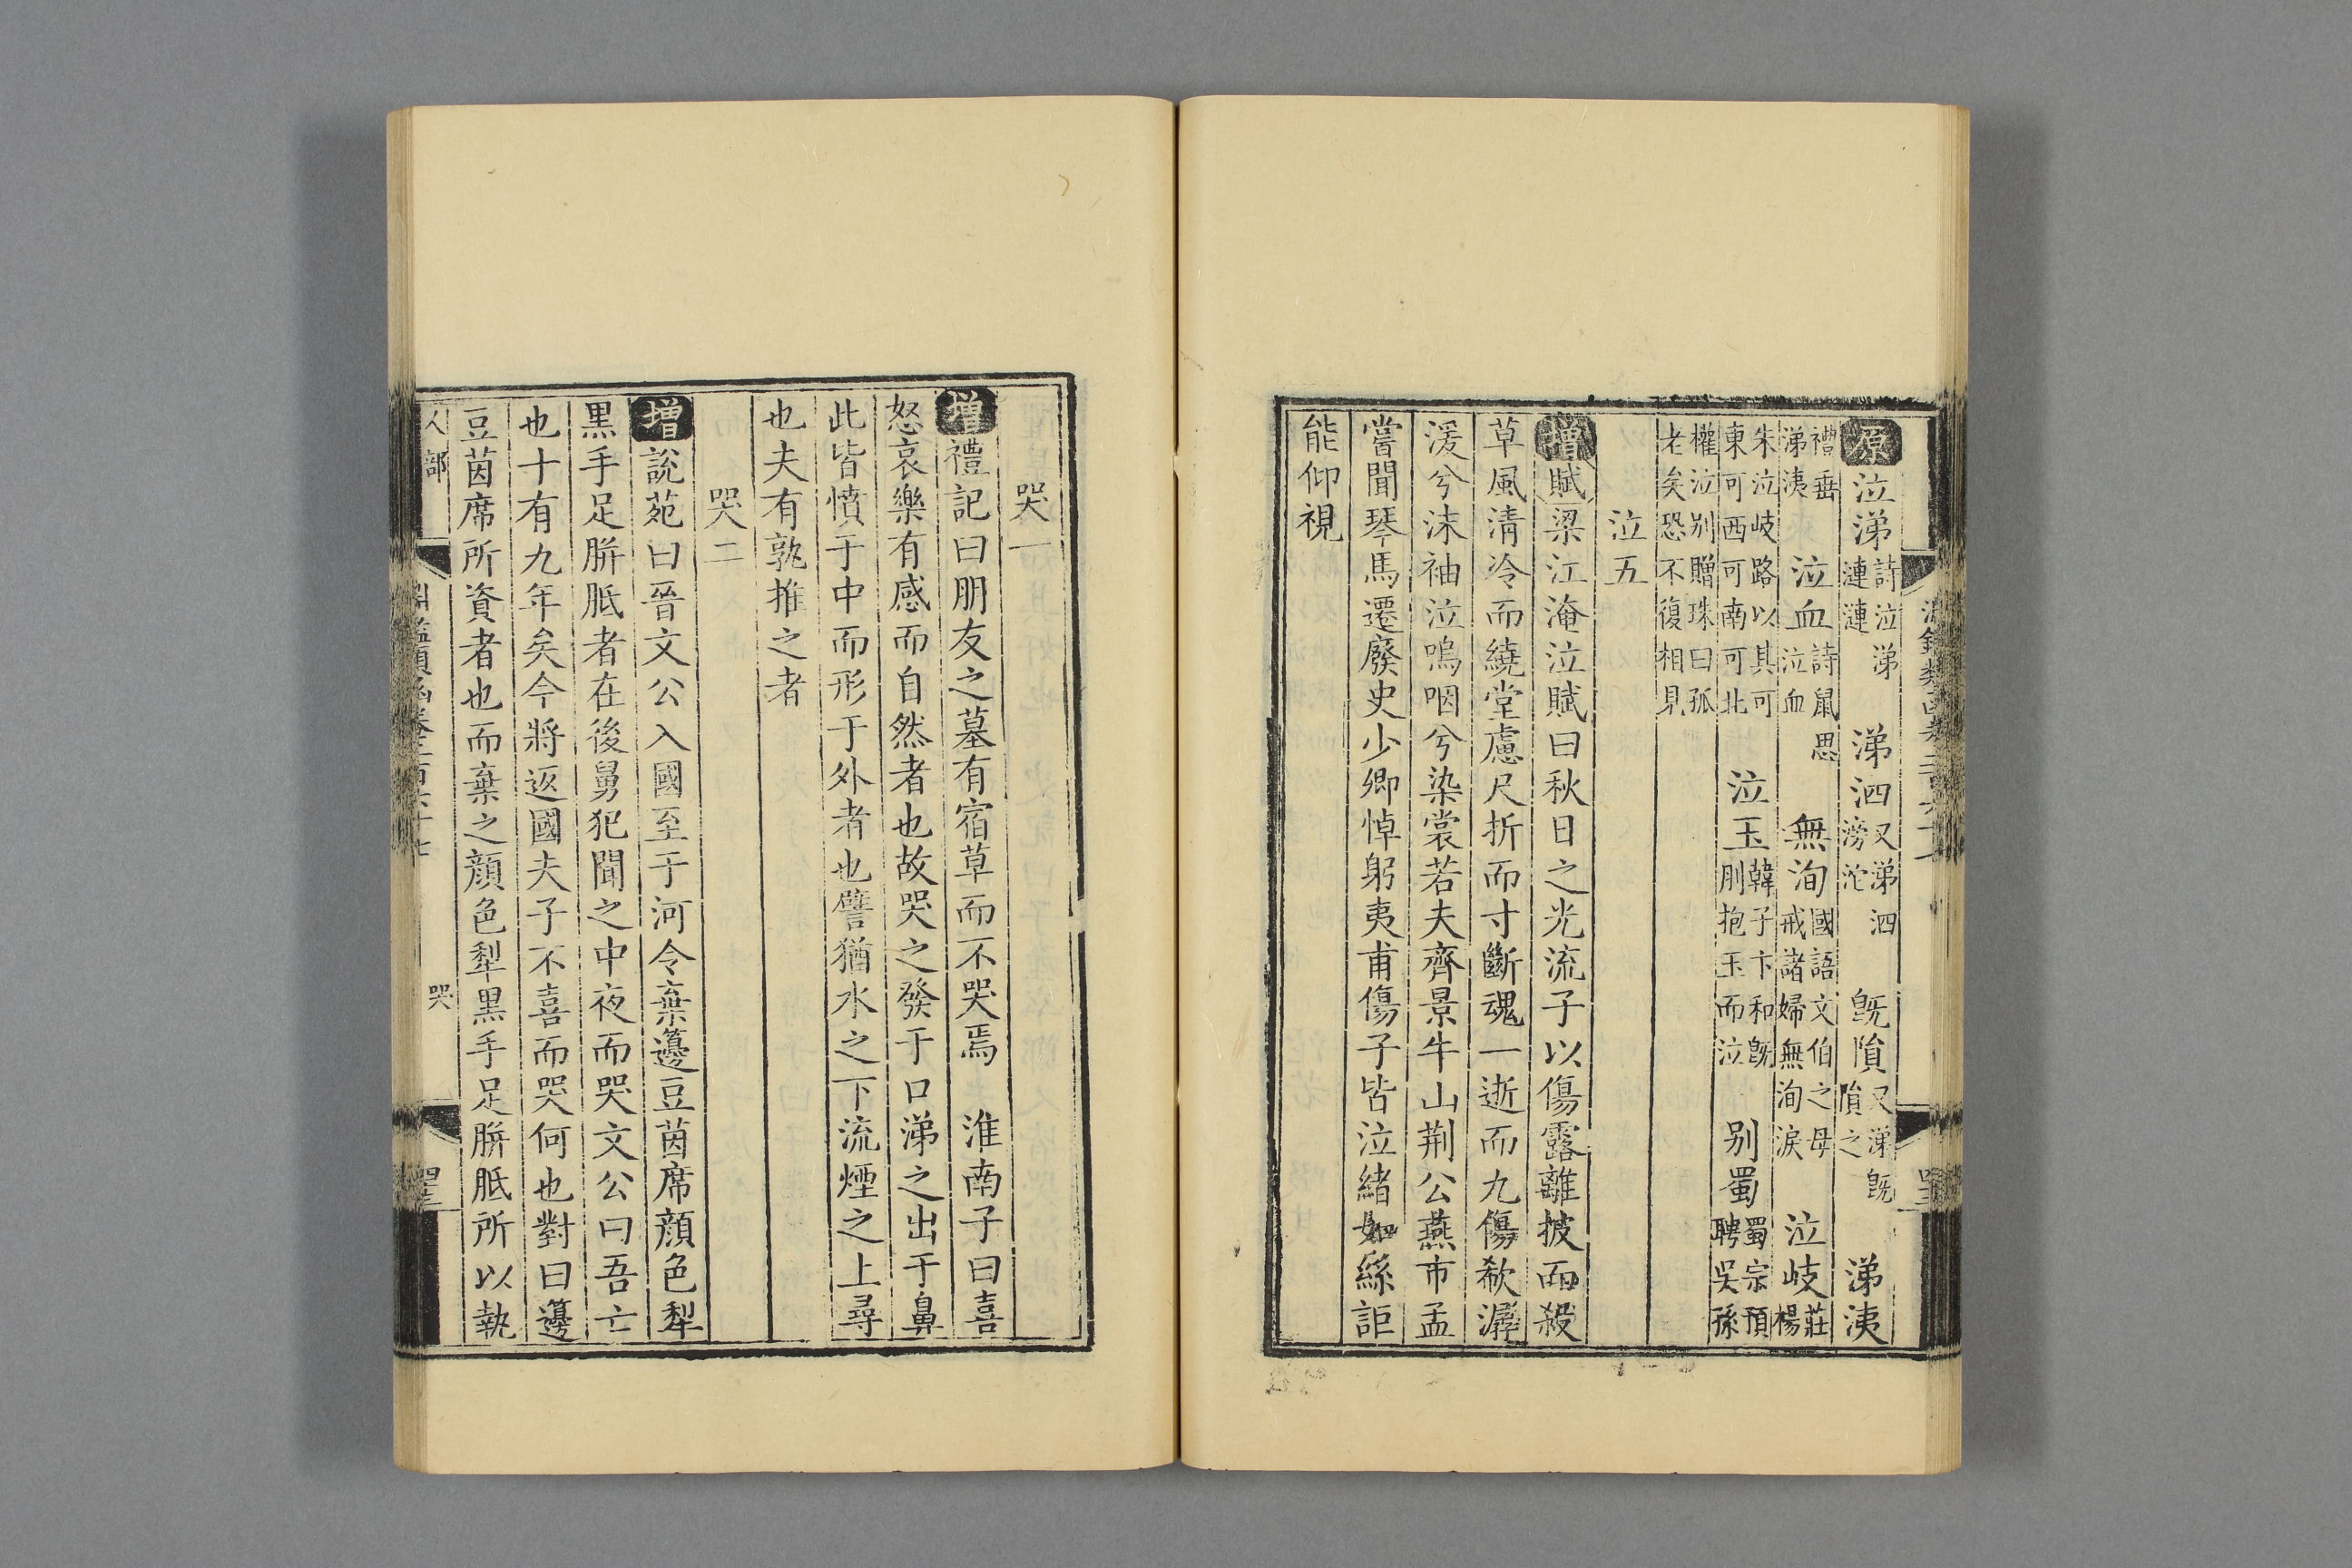 原泣涕詩泣涕漣漣 涕泗又涕泗滂沱 既隕又涕既隕之 涕洟
禮垂涕洟 泣血詩鼠思泣血 無洵國語文伯之母戒諸婦無洵涙 泣岐莊楊
朱泣岐路以其可東可西可南可北 泣玉韓子卞和既刖抱玉而泣 别蜀蜀宗預聘吳孫
權泣别贈珠曰孤老矣恐不復相見
泣五
增賦梁江淹泣賦曰秋日之光流子以傷露離披而殺
草風清冷而繞堂慮尺折而寸斷魂一逝而九傷欷潺
湲兮沫袖泣嗚咽兮染裳若夫齊景牛山荆公燕市孟
嘗聞琴馬遷廢史少卿悼躬夷甫傷子皆泣緒如絲詎
能仰視
哭一
增禮記曰朋友之墓有宿草而不哭焉 淮南子曰喜
怒哀樂有感而自然者也故哭之發于口涕之出于鼻
此皆憤于中而形于外者也譬猶水之下流煙之上尋
也夫有孰推之者
哭二
增說苑曰晉文公入國至于河令棄籩豆茵席顔色犁
黑手足胼胝者在後舅犯聞之中夜而哭文公曰吾亡
也十有九年矣今將返國夫子不喜而哭何也對曰籩
豆茵席所資者也而棄之顔色犁黑手足胼胝所以執
人部
哭